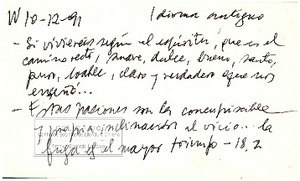 W 10-12-91 Idioma antiguo
- Si vivierais según el espíritu, que es el
camino recto, suave, dulce, bueno, santo,
puro, loable, claro y verdadero que nos
enseñó...
- Estas pasiones son las concupiscible
y propia inclinación al vicio... la
fuga es el mayor triunfo - 18, 2